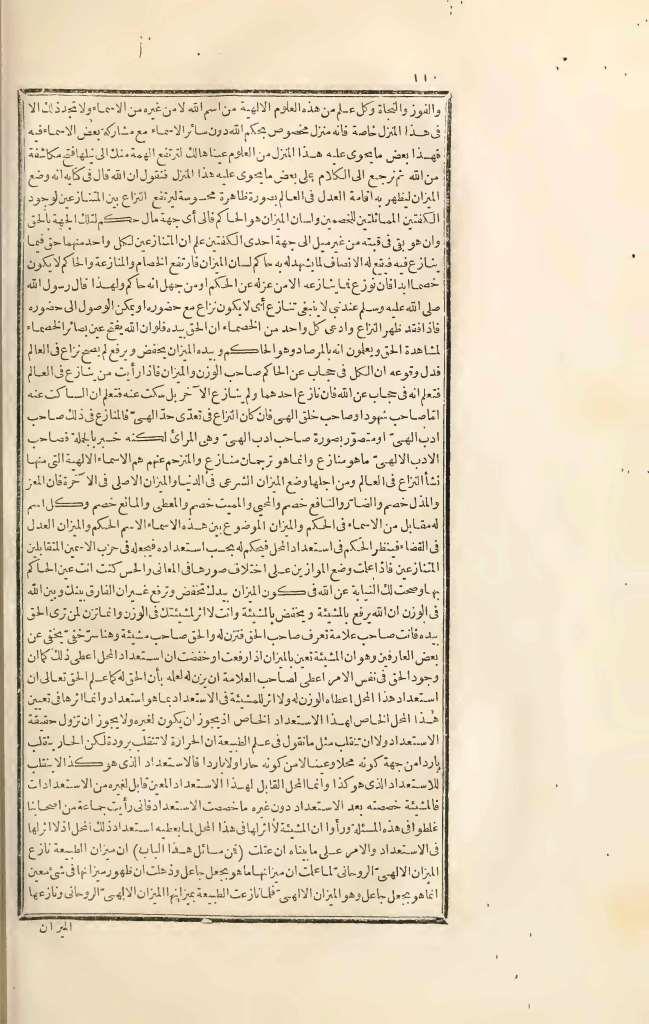 ١١٠
والفوز والنجاة وكل علم من هذه العلوم الالهية من اسم الله لا من غيره من الاسماء ولا تجد ذلك الا
فى هذا المنزل خاصة فانه منزل مخصوص بحكم الله دون سائر الاسماء مع مشاركة بعض الاسماء فيه
فهذا بعض ما يحوى عليه هذا المنزل من العلوم عيناها لك لترتفع الهمة منك الى نيلها فتح مكاشفة
من الله ثم نرجع الى الكلام على بعض ما يحوى عليه هذا المنزل فنقول ان الله قال فى كتابه انه وضع
الميزان ليظهر به اقامة العدل فى العالم بصورة ظاهرة محسوسة ليرتفع النزاع بين المتنازعين لوجود
الكفتين المماثلتين للخصمين ولسان الميزان هو الحاكم فالى أى جهة مال حكم لتلك الجهة بالحق
وان هو بقى فى قبته من غير ميل الى جهة احدى الكفتين علم ان المتنازعين لكل واحد منهما حق فيما
ينازع فيه فيقع له الانصاف لما يشهد له به حاكم لسان الميزان فارتفع الخصام والمنازعة والحاكم لا يكون
خصما ابدا فان نوزع فما ينازعه الا من عزله عن الحكم او من جهل انه حاكم ولهذا قال رسول الله
صلى الله عليه وسلم عند نبى لا ينبغى تنازع أى لا يكون نزاع مع حضوره او يمكن الوصول الى حضوره
فاذا فقد ظهر النزاع وادعى كل واحد من الخصماء ان الحق بيده فلو ان الله يفتح عين بصائر الخصماء
لمشاهدة الحق ويعلمون انه بالمرصاد وهو الحاكم وبيده الميزان يخفض ويرفع لم يصح نزاع فى العالم
فدل وقوعه ان الكل فى حجاب عن الحاكم صاحب الوزن والميزان فاذا رأيت من ينازع فى العالم
فتعلم انه فى حجاب عن الله فان نازع احدهما ولم ينازع الآخر بل سكت عنه فتعلم ان الساكت عنه
اتما صاحب شهود او صاحب خلق الهى فان كان النزاع فى تعدى حد الهى فالمنازع فى ذلك صاحب
ادب الهى او متصور بصورة صاحب ادب الهى وهى المرائى لكنه خير بالجملة فصاحب
الادب الالهى ما هو منازع وانما هو ترجمان منازع والمترجم عنهم هم الاسماء الالهية التى منها
نشأ النزاع فى العالم ومن اجلها وضع الميزان الشرعى فى الدنيا والميزان الاصلى فى الآخرة فان المعز
والمذل خصم والضار والنافع خصم والمحيى والمميت خصم والمعطى والمانع خصم وكل اسم
له مقابل من الاسماء فى الحكم والميزان الموضوع بين هذه الاسماء الاسم الحكم والميزان العدل
فى القضاء فينظر الحكم فى استعداد المحل فيحكم له بحسب استعداده فيجعله فى حزب الاسمين المتقابلين
المتنازعين فاذا علمت وضع الموازين على اختلاف صورها فى المعانى والحس كنت انت عين الحاكم
بها وصحت لك النيابة عن الله فى كون الميزان بيدك تخفض وترفع غير ان الفارق بينك وبين الله
فى الوزن ان الله يرفع بالمشيئة ويخفض بالمشيئة وانت لا اثر لمشيئتك فى الوزن وانما تزن لمن ترى الحق
بيده فانت صاحب علامة تعرف صاحب الحق فتزن له والحق صاحب مشيئة وهنا سر خفى يخفى عن
بعض العارفين وهو ان المشيئة تعين بالميزان اذا رفعت او خفضت ان استعداد المحل اعطى ذلك كما ان
وجود الحق فى نفس الامر اعطى لصاحب العلامة ان يزن له لعله بأن الحق له كما علم الحق تعالى ان
استعداد هذا المحل اعطاه الوزن له ولا اثر للمشيئة فى الاستعداد بما هو استعداد وانما اثرها فى تعيين
هذا المحل الخاص لهذا الاستعداد الخاص اذ يجوز ان يكون لغيره ولا يجوز ان تزول حقيقة
الاستعداد ولا ان تنقلب مثل ما نقول فى علم الطبيعة ان الحرارة لا تنقلب برودة لكن الحار ينقلب
باردا من جهة كونه محلا وعينا لا من كونه حارا ولا باردا فالاستعداد الذى هو كذا لا ينقلب
للاستعداد الذى هو كذا وانما المحل القابل لهذا الاستعداد المعين قابل لغيره من الاستعدادات
فالمشيئة خصصته بعد الاستعداد دون غيره ما خصصت الاستعداد فانى رأيت جماعة من اصحابنا
غلطوا فى هذه المسئلة ورأوا ان المشيئة لا اثر لها فى هذا المحل لما يعطيه استعداد ذلك المحل اذ لا اثر لها
فى الاستعداد والامر على ما بيناه ان عقلت (فمن مسائل هذا الباب) ان ميزان الطبيعة نازع
الميزان الالهى الروحانى لما علمت ان ميزانها ما هو بجعل جاعل وذهلت ان ظهور ميزانها فى شئ معين
انما هو بجعل جاعل وهو الميزان الالهى فلما نازعت الطبيعة بميزانها الميزان الالهى الروحانى ونازعها
الميزان